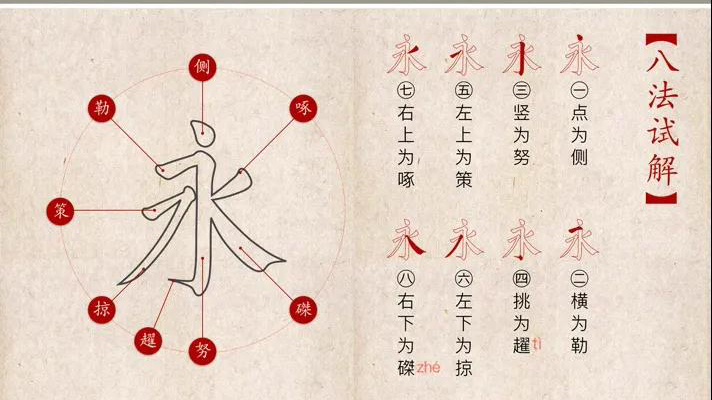 【八法试解】
永
㊀点为侧
永
㊁横为勒
永
㊂竖为努
永
㊃挑为趯 tì
永
㊄左上为策
永
㊅左下为掠
永
㊆右上为啄
永
㊇右下为磔 zhé
永
侧
啄
勒
策
掠
趯
努
磔